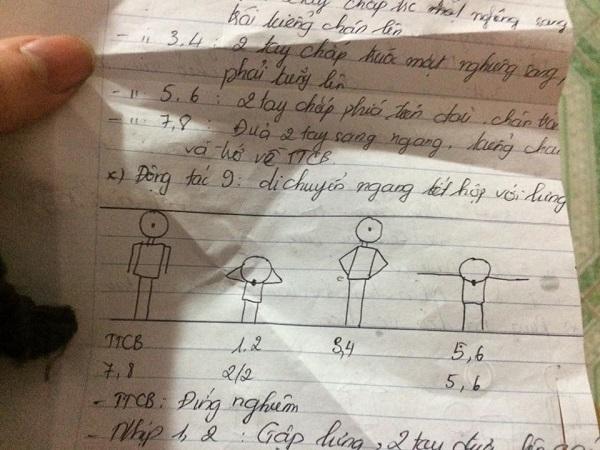 tay chắp
trái kiễng chân lên
- '' 3,4 : 2 tay chắp trước mặt nghiêng sang
phải kiễng lên
- '' 5,6 : 2 tay chắp phía trên đầu, chân
- '' 7,8 : Đưa 2 tay sang ngang, kiễng chân
và trở về TTCB.
x) Động tác 9: di chuyển ngang kết hợp với lưng
TTCB 1.2 3,4 5,6
7,8 2/2 5,6
- TTCB: Đứng nghiêm
- Nhịp 1, 2 : Gập lưng, 2 tay đưa lên